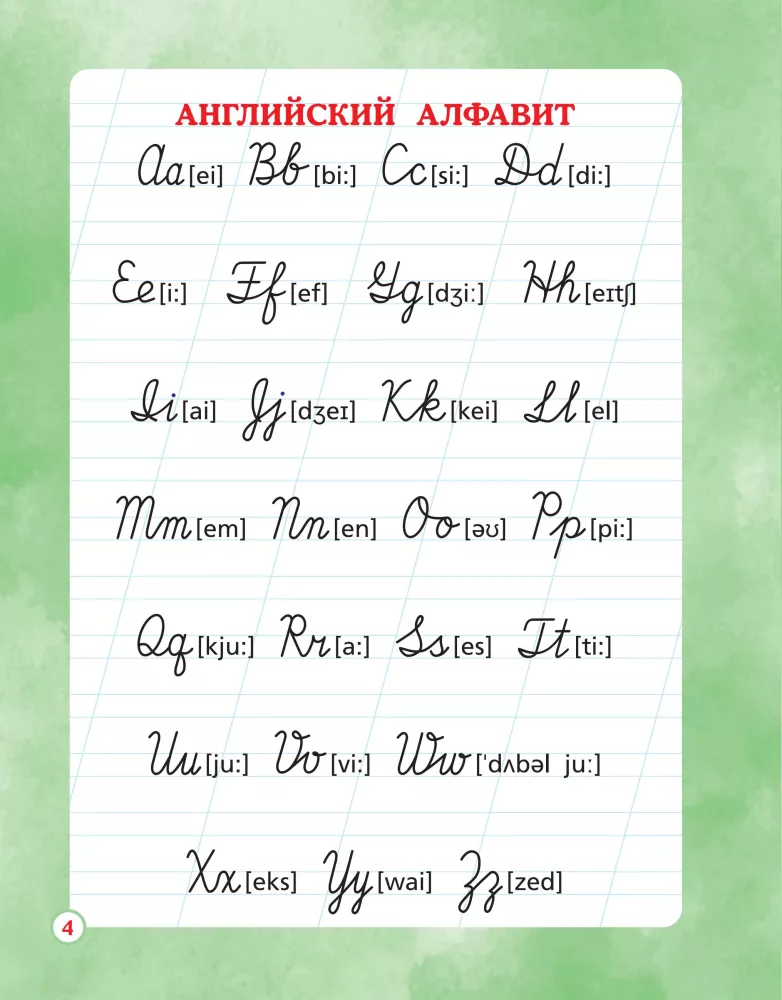 АНГЛИЙСКИЙ АЛФАВИТ
Aa [ei] Bb [bi:] Cc [si:] Dd [di:]
Ee [i:] Ff [ef] Gg [dʒiː] Hh [eɪtʃ]
Ii [ai] Jj [dʒeɪ] Kk [kei] Ll [el]
Mm [em] Nn [en] Oo [əʊ] Pp [pi:]
Qq [kju:] Rr [a:] Ss [es] Tt [ti:]
Uu [ju:] Vv [vi:] Ww [ˈdʌbəl juː]
Xx [eks] Yy [wai] Zz [zed]
4